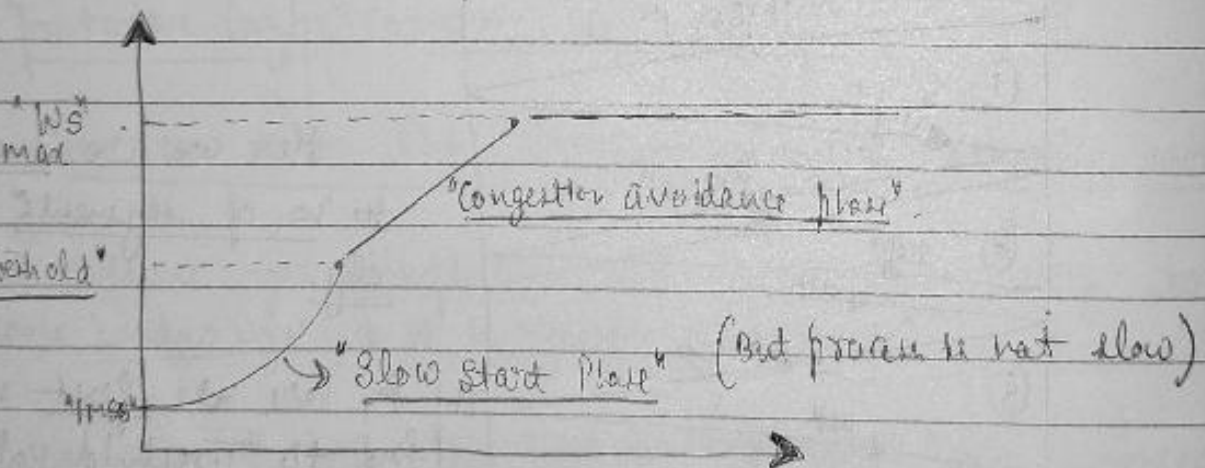 "WS"
max
"Congestion avoidance phase".
eshold"
"Slow Start Phase" (But process is not slow)
"1MSS"